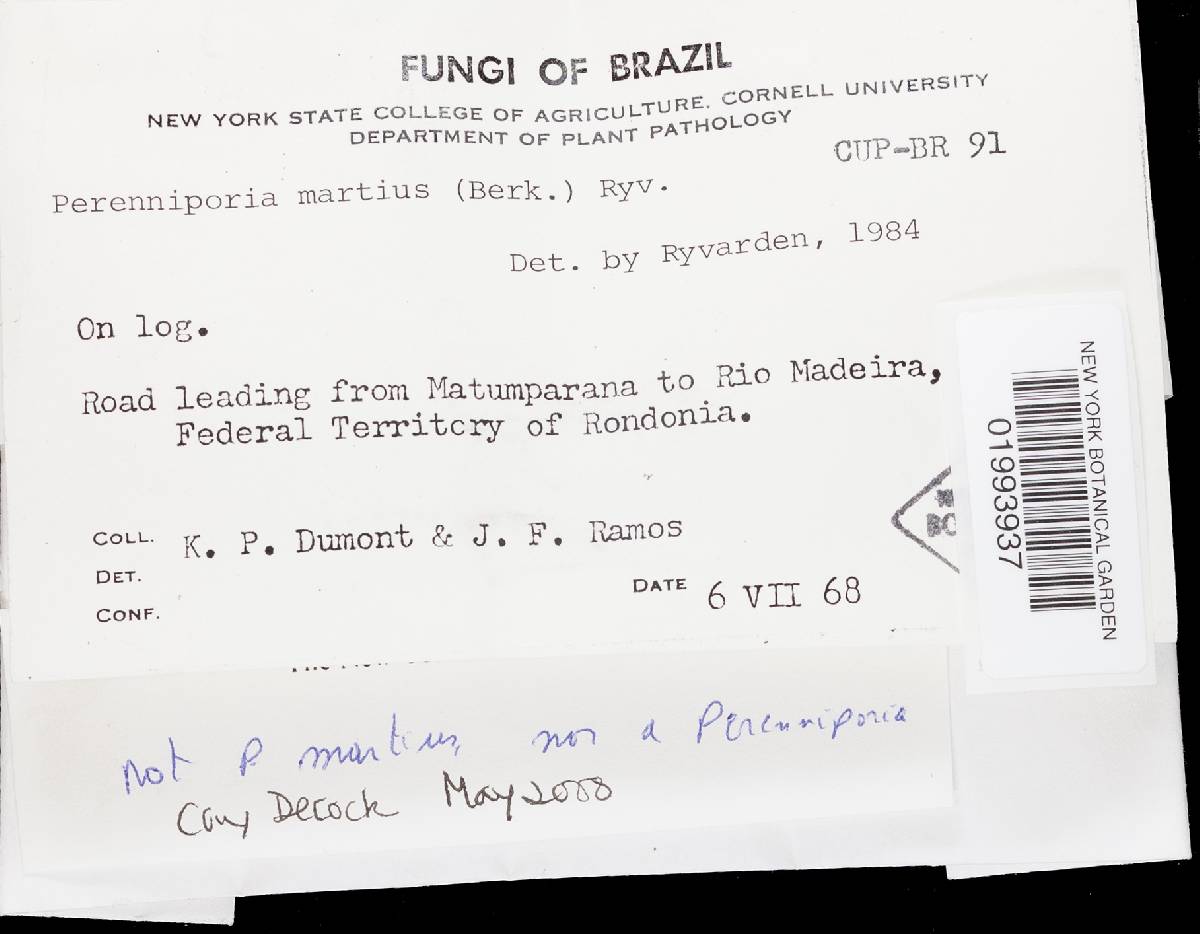 FUNGI OF BRAZIL
NEW YORK STATE COLLEGE OF AGRICULTURE, CORNELL UNIVERSITY
DEPARTMENT OF PLANT PATHOLOGY
CUP-BR 91
Perenniporia martius (Berk.) Ryv.
Det. by Ryvarden, 1984
On log.
Road leading from Matumparana to Rio Madeira,
Federal Territcry of Rondonia.
COLL. K. P. Dumont & J. F. Ramos
DET.
DATE 6 VII 68
CONF.
NEW YORK BOTANICAL GARDEN
01993937
not P martius, nor a Perenniporia
Cony Decock May 2008